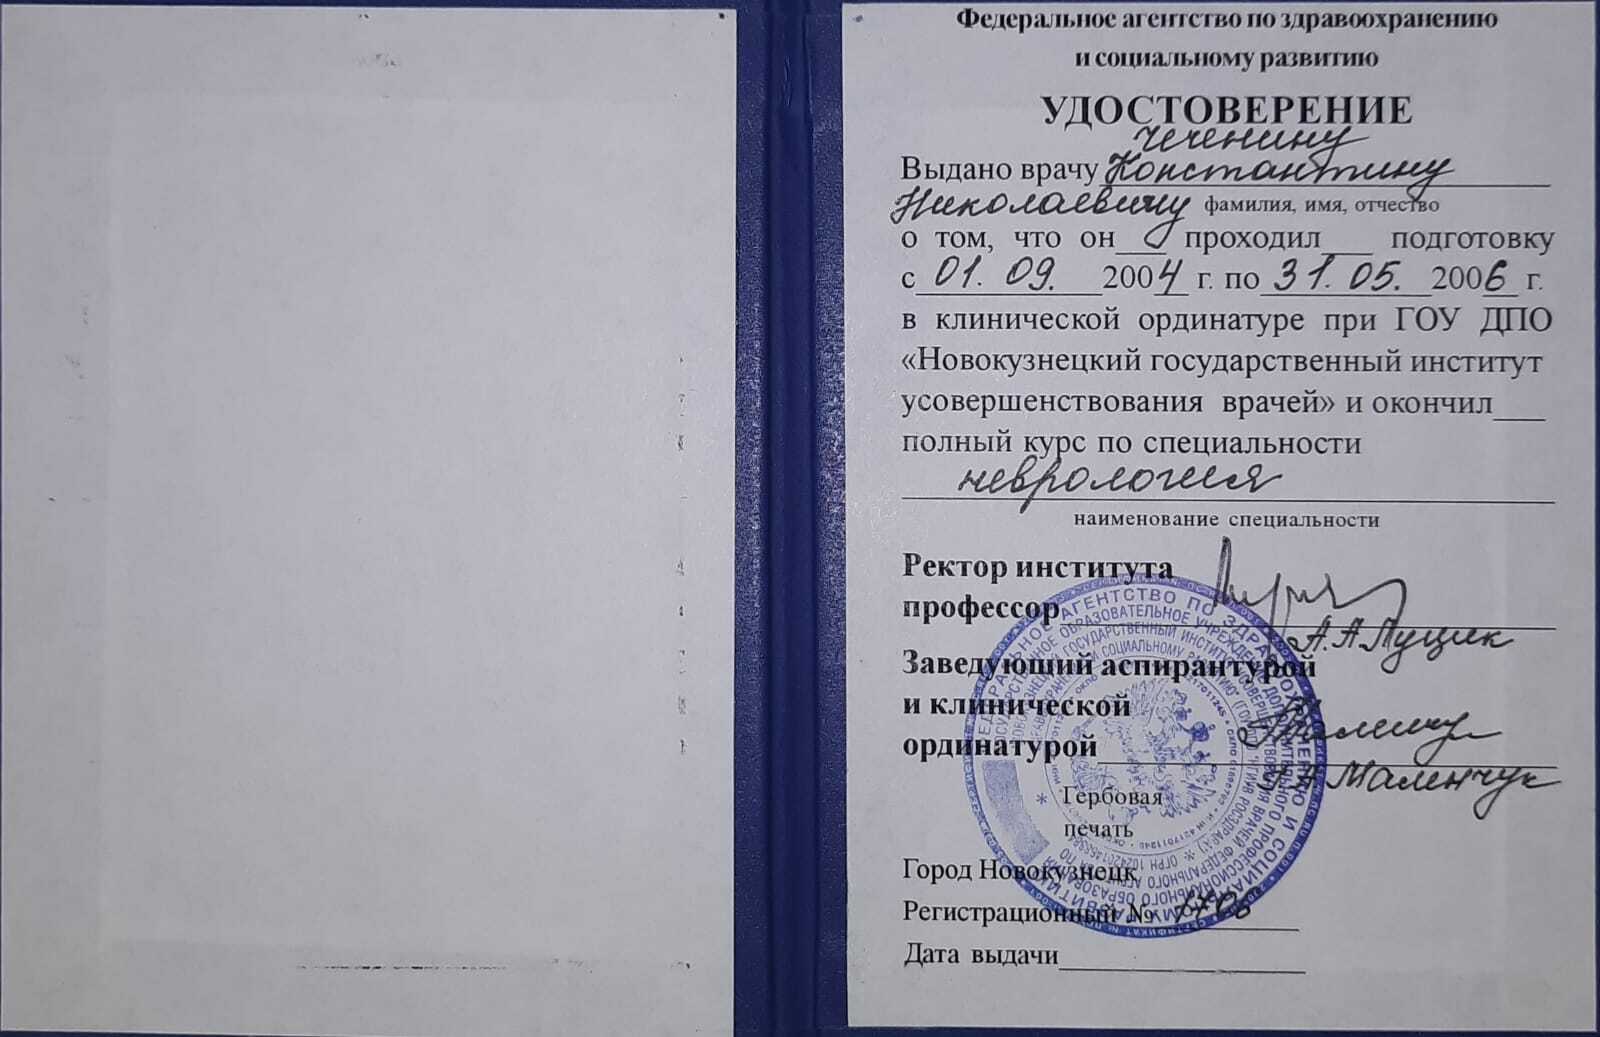 Федеральное агентство по здравоохранению
и социальному развитию
УДОСТОВЕРЕНИЕ
Чеченину
Выдано врачу Константину
Николаевичу фамилия, имя, отчество
о том, что он проходил подготовку
с 01. 09. 2004 г. по 31. 05. 2006 г.
в клинической ординатуре при ГОУ ДПО
«Новокузнецкий государственный институт
усовершенствования врачей» и окончил
полный курс по специальности
неврология
наименование специальности
Ректор института
профессор
А.А. Луцик
Заведующий аспирантурой
и клинической
ординатурой
Маленчук
Гербовая
печать
Город Новокузнецк
Регистрационный №
Дата выдачи
ФЕДЕРАЛЬНОЕ АГЕНТСТВО ПО ЗДРАВООХРАНЕНИЮ И СОЦИАЛЬНОМУ РАЗВИТИЮ